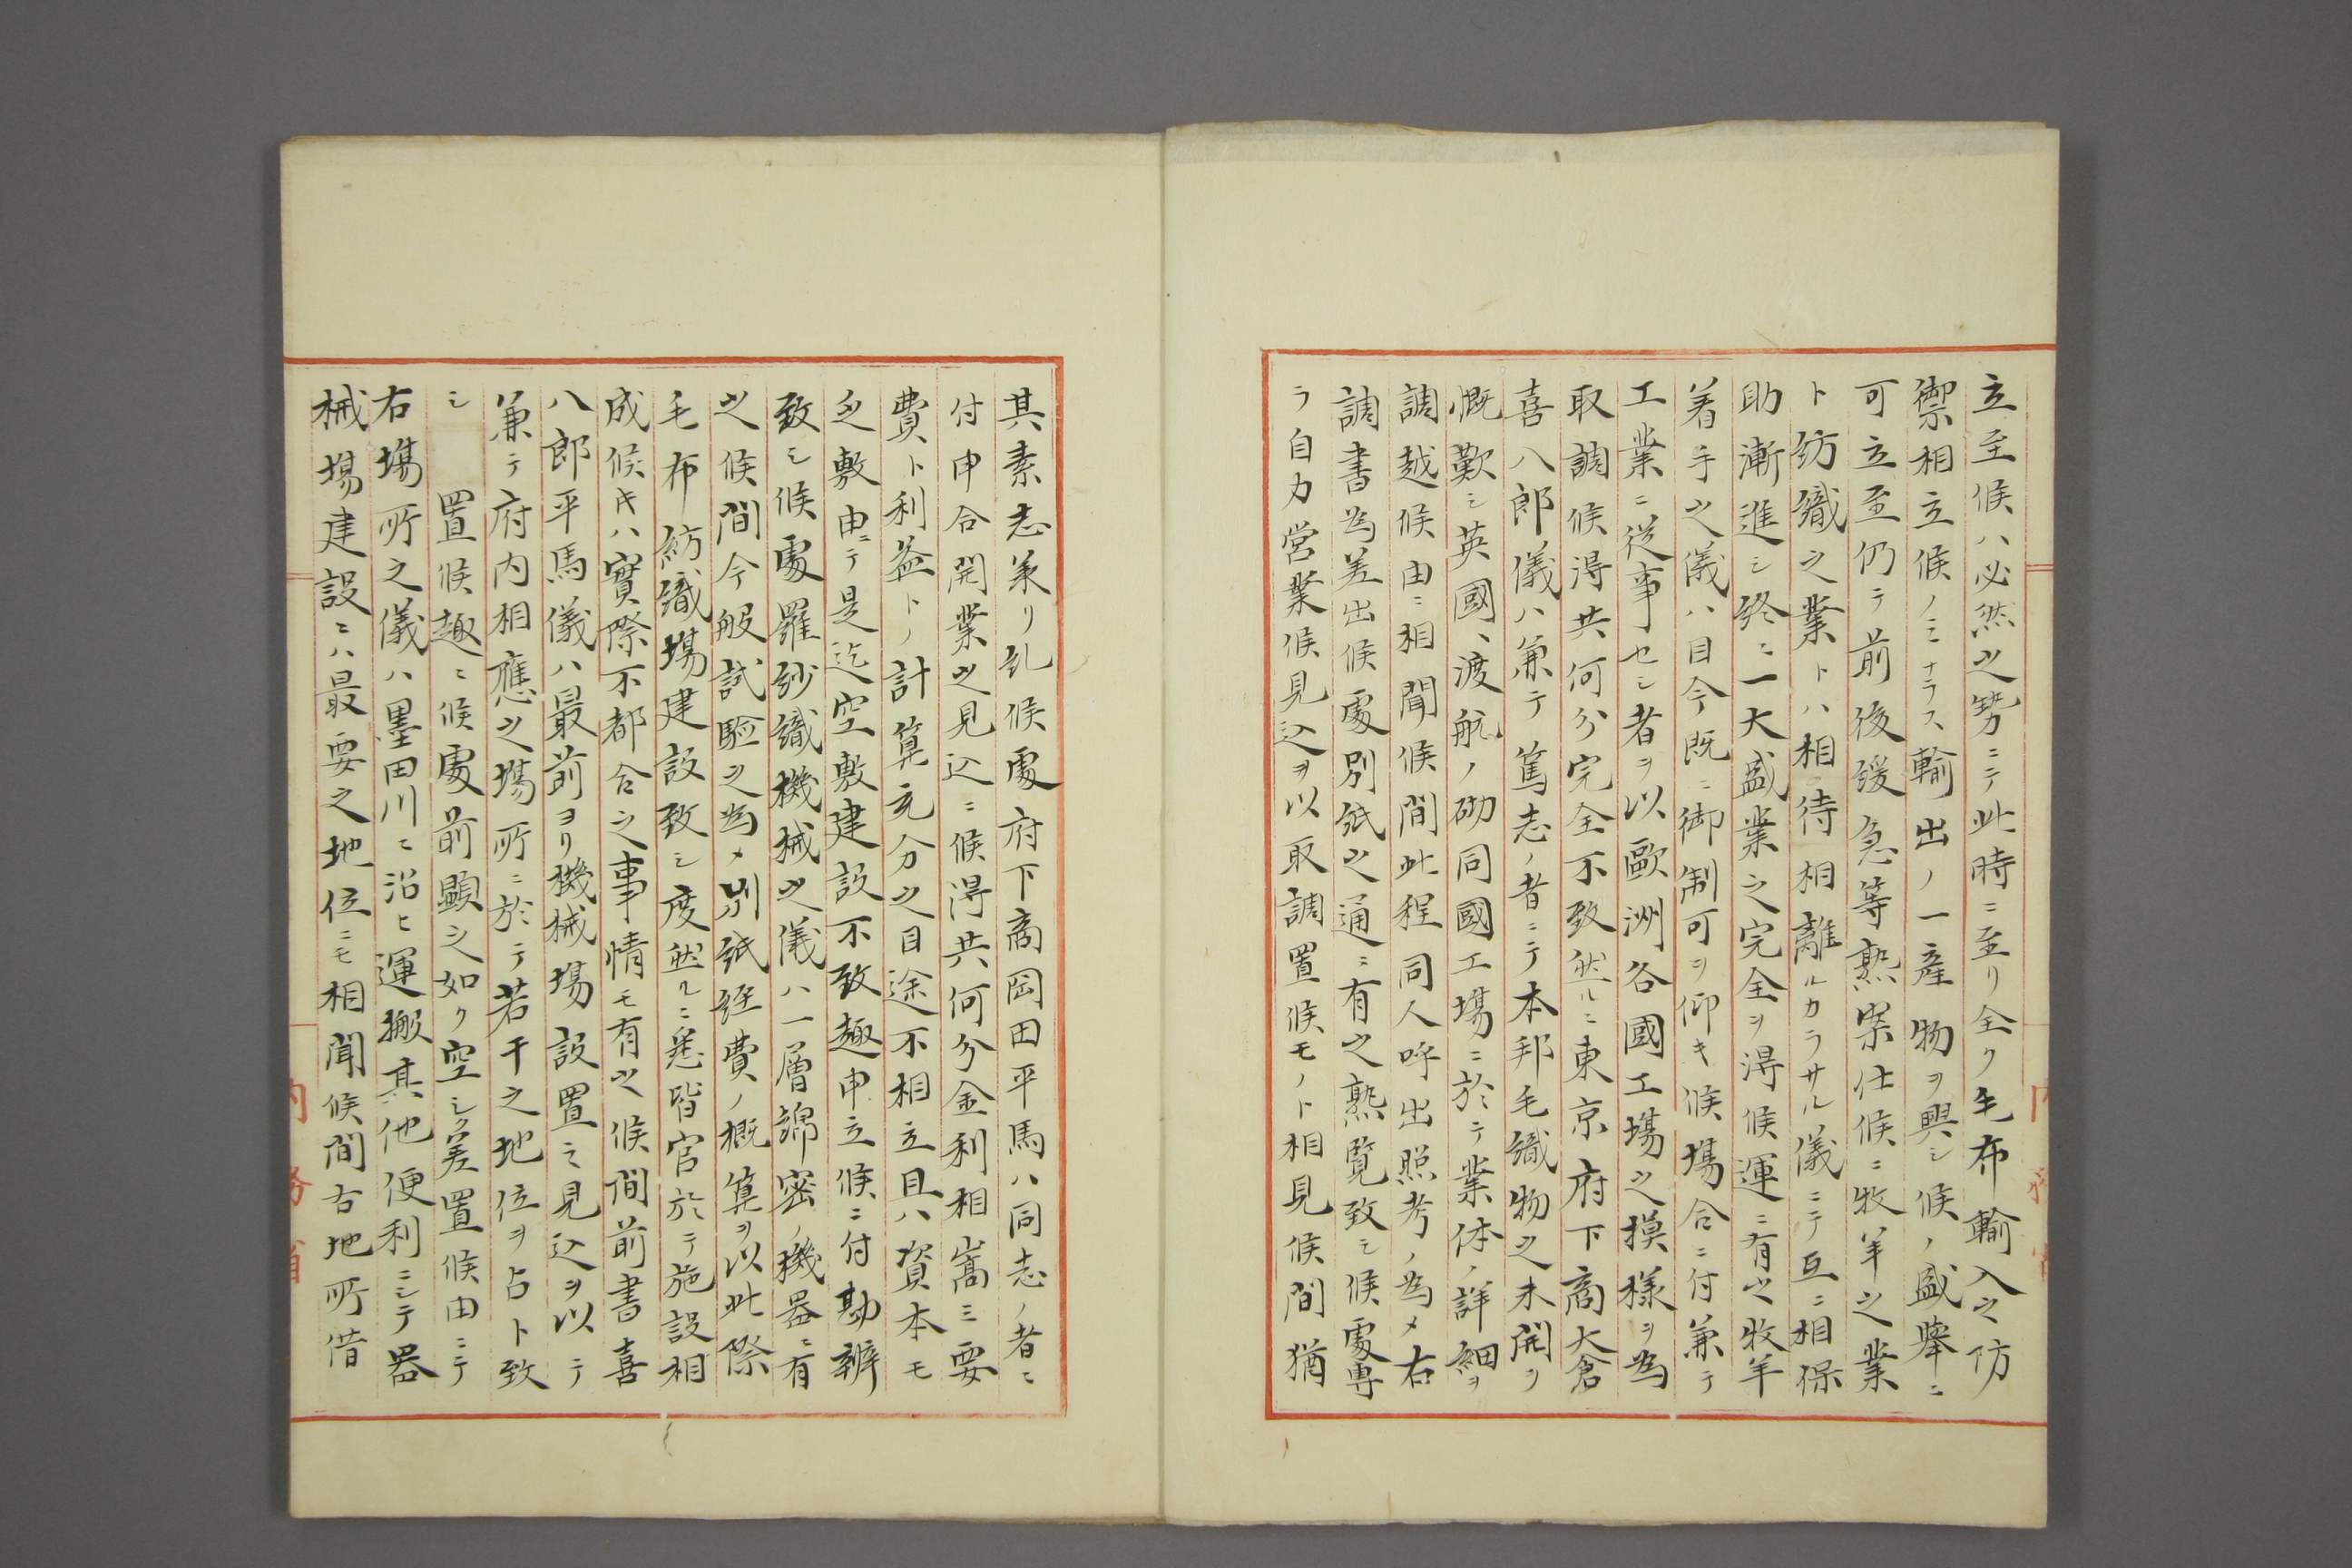 立至候ハ必然之勢ニテ此時ニ至リ全ク毛布輸入之防
禦相立候ノミナラス輸出ノ一産物ヲ興シ候ノ盛挙ニ
可立至仍テ前後緩急等熟案仕候ニ牧羊之業
ト紡織之業トハ相待相離ルカラサル儀ニテ互ニ相保
助漸進シ終ニ一大盛業之完全ヲ得候運ニ有之牧羊
着手之儀ハ目今既ニ御制可ヲ仰キ候場合ニ付兼テ
工業ニ従事セシ者ヲ以歐洲各國工場之摸様ヲ為
取調候得共何分完全不致然ルニ東京府下商大倉
喜八郎儀ハ兼テ篤志ノ者ニテ本邦毛織物之未開ヲ
慨歎シ英國ヘ渡航ノ砌同國工場ニ於テ業体ノ詳細ヲ
調越候由ニ相聞候間此程同人呼出照考ノ為メ右
調書為差出候處別紙之通ニ有之熟覧致シ候處専
ラ自力営業候見込ヲ以取調置候モノト相見候間猶
其素志篤ト承リ糺候處府下商岡田平馬ハ同志ノ者ニ
付申合開業之見込ニ候得共何分金利相嵩ミ要
費ト利益トノ計算充分之目途不相立且ハ資本モ
乏敷由ニテ是迄空敷建設不致趣申立候ニ付勘辨
致シ候處羅紗織機械之儀ハ一層綿密ノ機器ニ有
之候間今般試驗之為メ別紙経費ノ概算ヲ以此際
毛布紡織場建設致シ度然ルニ悉皆官於テ施設相
成候キハ實際不都合之事情モ有之候間前書喜
八郎平馬儀ハ最前ヨリ機械場設置之見込ヲ以テ
兼テ府内相應之場所ニ於テ若干之地位ヲ占ト致
シ置候趣ニ候處前顕之如ク空シク差置候由ニテ
右場所之儀ハ墨田川ニ沿ヒ運搬其他便利ニシテ器
械場建設ニハ最要之地位ニモ相聞候間右地所借
内務省